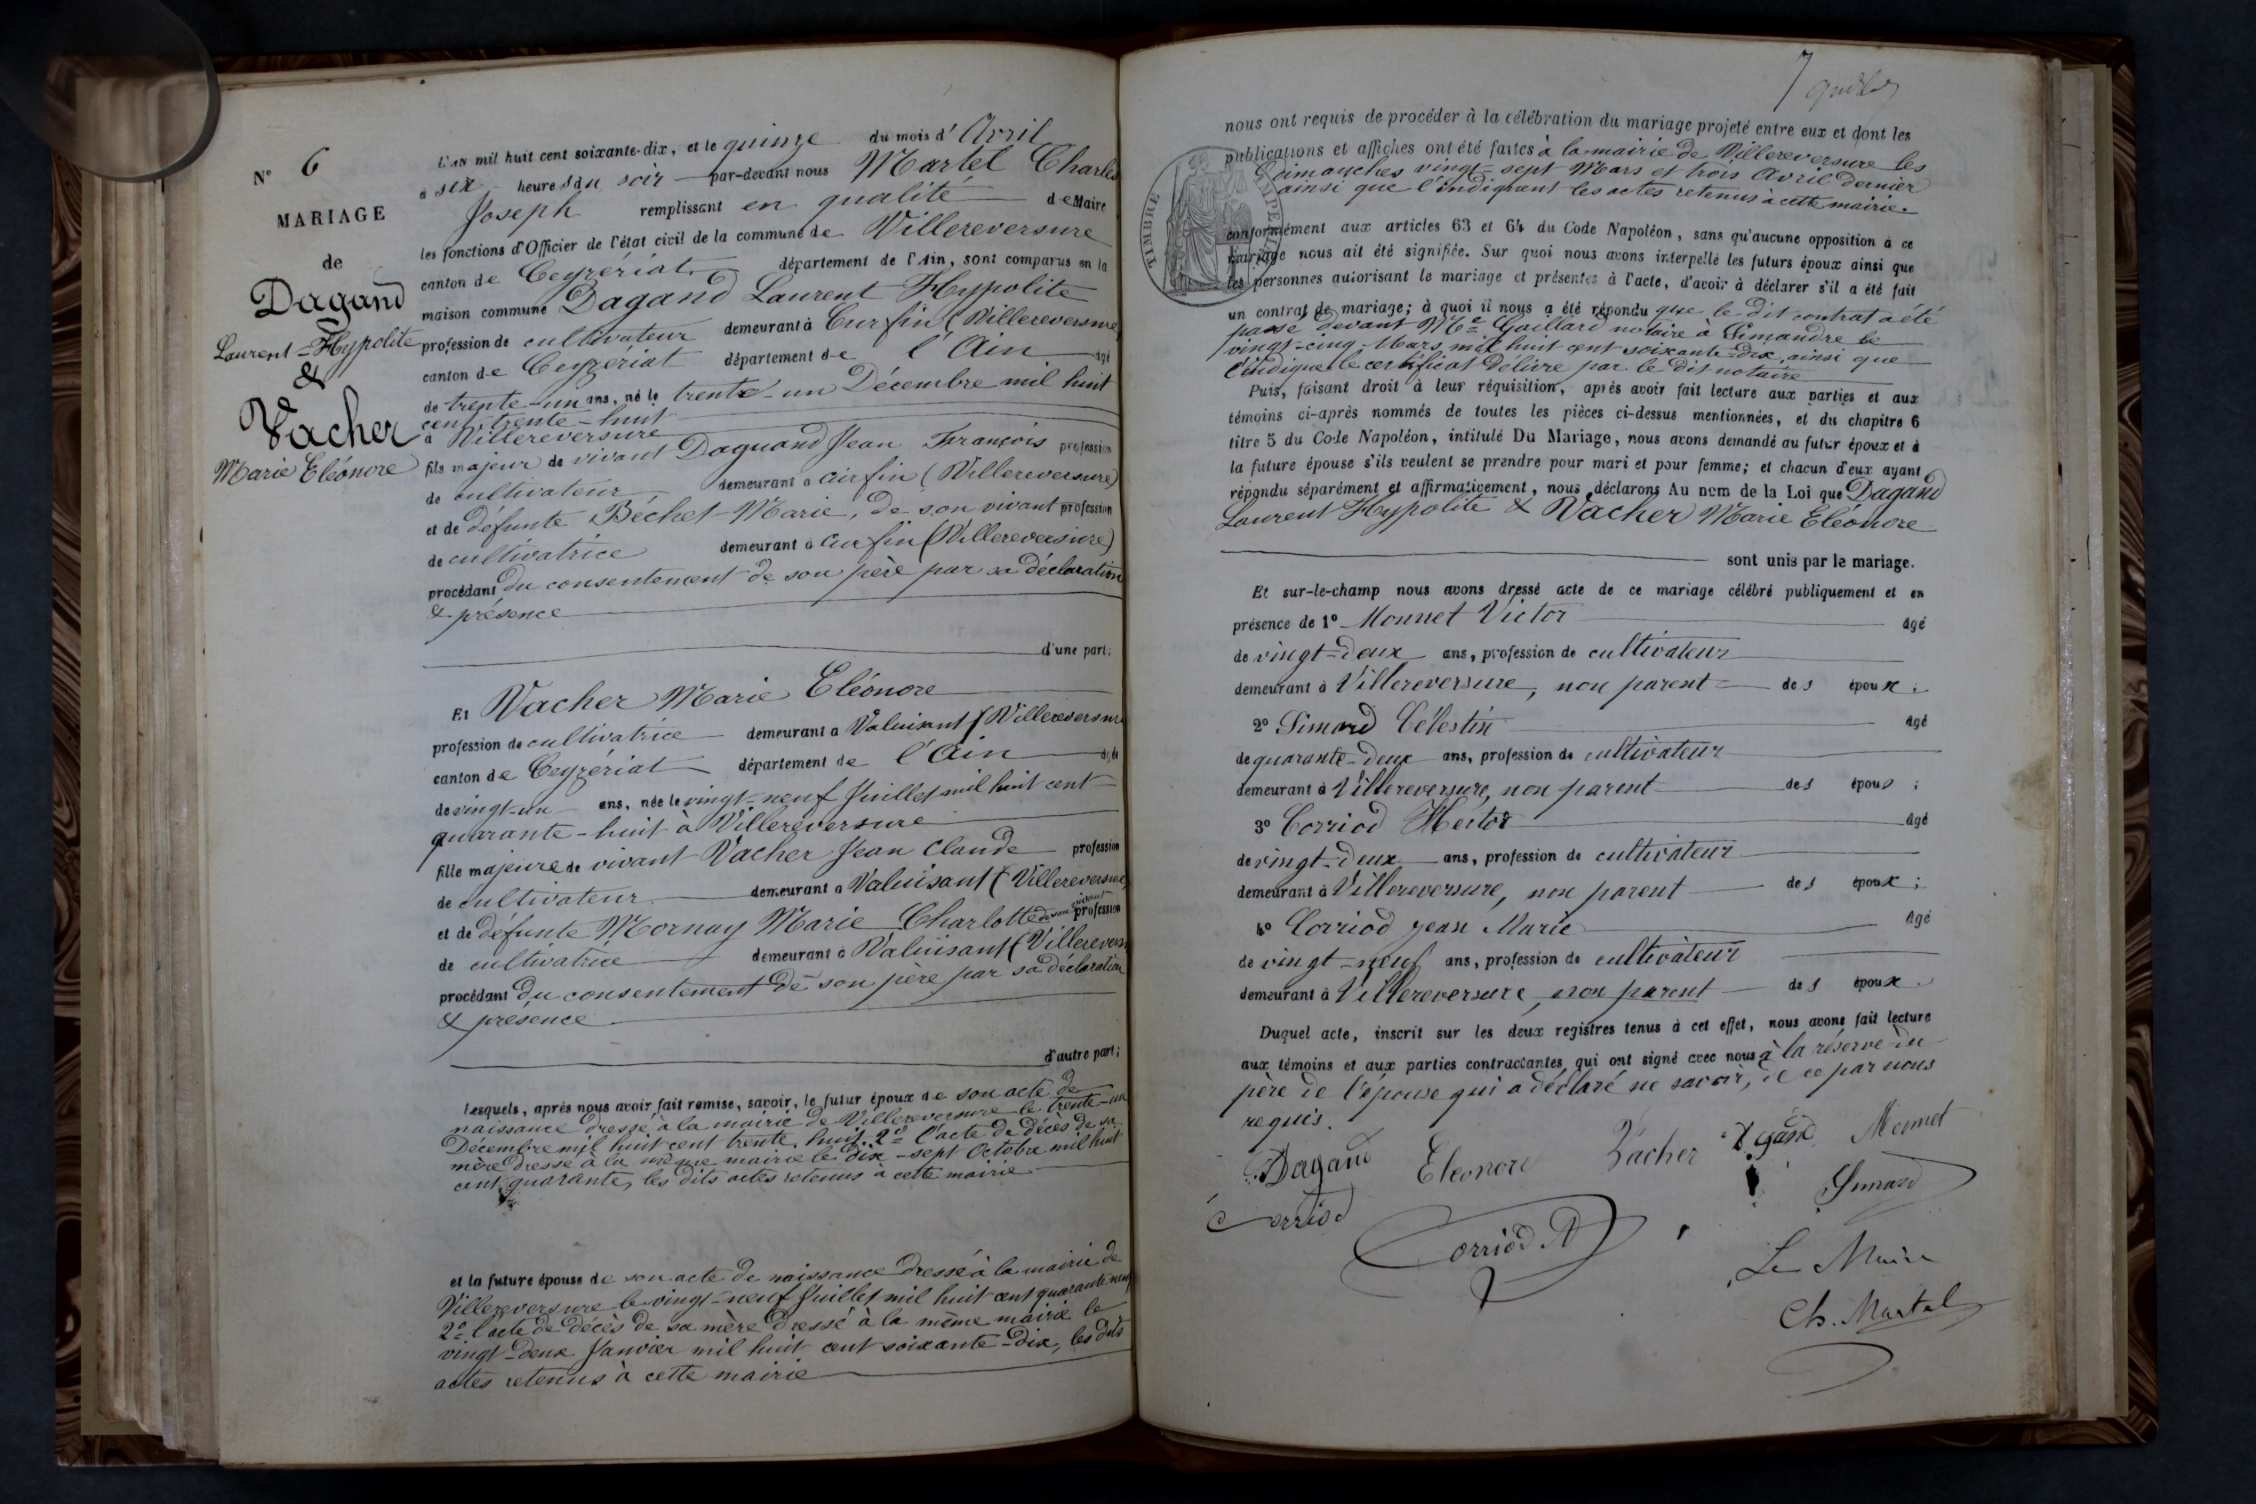 N° 6
MARIAGE
de
Dagand
Laurent-Hypolite
&
Vacher
Marie Eléonore
L'AN mil huit cent soixante-dix, et le quinze du mois d'Avril
a six heures du soir par-devant nous Martel Charles
Joseph remplissant en qualité de Maire
les fonctions d'Officier de l'état civil de la commune de Villereversure
canton de Ceyzériat département de l'Ain, sont comparus en la
maison commune Dagand Laurent Hypolite
profession de cultivateur demeurant à Curfin (Villereversure)
canton de Ceyzeriat département de l'Ain âgé
de trente-un ans, né le trente-un Décembre mil huit
cent trente-huit
à Villereversure
fils majeur de vivant Daguand Jean François profession
de cultivateur demeurant à Curfin (Villereversure)
et de défunte Béchet Marie, de son vivant profession
de cultivatrice demeurant à Curfin (Villereversure)
procédant du consentement de son père par sa déclaration
& présence
d'une part;
Et Vacher Marie Eléonore
profession de cultivatrice demeurant à Valuisant (Villereversure
canton de Ceyzériat département de l'Ain âgée
de vingt-un ans, née le vingt-neuf Juillet mil huit cent
quarante-huit à Villereversure
fille majeure de vivant Vacher Jean Claude profession
de cultivateur demeurant à Valuisant (Villereversure)
et de défunte Mornay Marie Charlotte de son vivant profession
de cultivatrice demeurant à Valuisant (Villerevers
procédant du consentement de son père par sa déclaration
& présence
d'autre part;
Lesquels, après nous avoir fait remise, savoir, le futur époux de son acte de
naissance dressé à la mairie de Villereversure le trente-un
Décembre mil huit cent trente huit. 2° l'acte de décès de sa
mère dressé à la même mairie le dix-sept Octobre mil huit
cent quarante, les dits actes retenus à cette mairie
et la future épouse de son acte de naissance dressé à la mairie de
Villereversure le vingt-neuf Juillet mil huit cent quarante neuf
2° l'acte de décès de sa mère dressé à la même mairie le
vingt-deux Janvier mil huit cent soixante-dix, les dits
actes retenus à cette mairie
7
nous ont requis de procéder à la célébration du mariage projeté entre eux et dont les
publications et affiches ont été faites à la mairie de Villereversure les
Dimanches vingt-sept Mars et trois Avril dernier
ainsi que l'indiquent les actes retenus à cette mairie.
TIMBRE
conformément aux articles 63 et 64 du Code Napoléon, sans qu'aucune opposition à ce
mariage nous ait été signifiée. Sur quoi nous avons interpellé les futurs époux ainsi que
les personnes autorisant le mariage et présentes à l'acte, d'avoir à déclarer s'il a été fait
un contrat de mariage; à quoi il nous a été répondu que le dit contrat a été
passé devant Me Gaillard notaire à Simandre le
vingt-cinq Mars mil huit cent soixante-dix, ainsi que
l'indique le certificat délivré par le dit notaire
Puis, faisant droit à leur réquisition, après avoir fait lecture aux parties et aux
témoins ci-après nommés de toutes les pièces ci-dessus mentionnées, et du chapitre 6
titre 5 du Code Napoléon, intitulé Du Mariage, nous avons demandé au futur époux et à
la future épouse s'ils veulent se prendre pour mari et pour femme; et chacun d'eux ayant
répondu séparément et affirmativement, nous déclarons Au nom de la Loi que Dagand
Laurent Hypolite & Vacher Marie Eléonore
sont unis par le mariage.
Et sur-le-champ nous avons dressé acte de ce mariage célébré publiquement et en
présence de 1° Monnet Victor âgé
de vingt-deux ans, profession de cultivateur
demeurant à Villereversure, non parent des époux;
2° Simard Célestin âgé
de quarante-deux ans, profession de cultivateur
demeurant à Villereversure, non parent des époux;
3° Corriod Hector âgé
de vingt-deux ans, profession de cultivateur
demeurant à Villereversure, non parent des époux;
4° Corriod Jean Marie âgé
de vingt-neuf ans, profession de cultivateur
demeurant à Villereversure, non parent des époux.
Duquel acte, inscrit sur les deux registres tenus à cet effet, nous avons fait lecture
aux témoins et aux parties contractantes qui ont signé avec nous à la réserve du
père de l'épouse qui a déclaré ne savoir, de ce par nous
requis.
Dagand Eléonore Vacher Dagand Monnet
Corriod Simard
Corriod
Le Maire
Ch. Martel